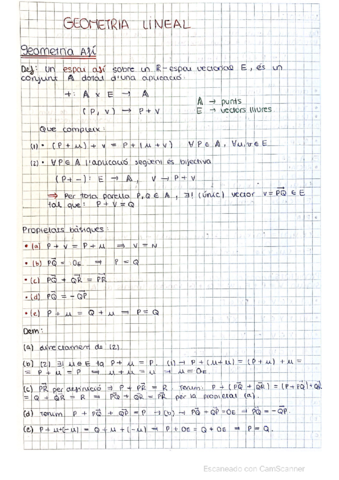 GEOMETRIA LINEAL
Geometria Afí
Def: Un espai afí sobre un R-espai vectorial E, és un
conjunt A dotat d'una aplicació:
+: A x E → A
(P, v) → P + v
A → punts
E → vectors lliures
Que compleix:
(1) • (P + u) + v = P + (u + v) ∀P ∈ A, ∀u, v ∈ E
(2) • ∀P ∈ A l'aplicació següent és bijectiva
(P + -): E → A, v → P + v
⇒ Per tota parella P, Q ∈ A, ∃! (únic) vector v = PQ ∈ E
tal que: P + v = Q
Propietats bàsiques:
• (a) P + v = P + u ⇒ v = u
• (b) PQ = 0E ⇒ P = Q
• (c) PQ + QR = PR
• (d) PQ = -QP
• (e) P + u = Q + u ⇒ P = Q
Dem:
(a) directament de (2)
(b) (2) ∃ u ∈ E tq P + u = P. (1) → P + (u + u) = (P + u) + u =
= P + u = P ⇒ u + u = u → u = 0E
(c) PR per definició → P + PR = R. Tenim: P + (PQ + QR) = (P + PQ) + QR
= Q + QR = R ⇒ PQ + QR = PR per la propietat (a).
(d) Tenim P + PQ + QP = P → (b) → PQ + QP = 0E → PQ = -QP.
(e) P + u + (-u) = Q + u + (-u) → P + 0E = Q + 0E ⇒ P = Q.
Escaneado con CamScanner